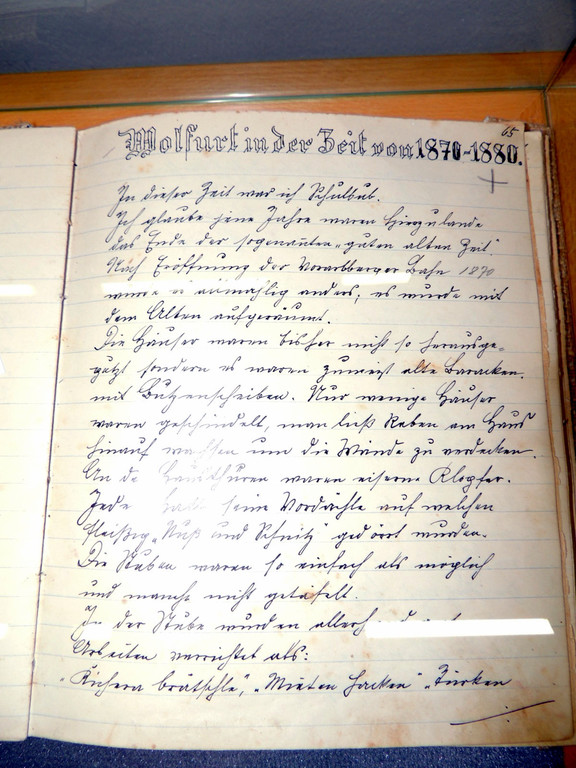 65
Wolfurt in der Zeit von 1870-1880.
In dieser Zeit war ich Schulbub.
Ich glaube jene Jahre waren hierzulande
das Ende der sogenanten „guten alten Zeit".
Nach Eröffnung der Vorarlberger Bahn 1870
wurde es allmählig anders; es wurde mit
dem Alten aufgeräumt.
Die Häuser waren bisher nicht so herausge-
putzt sondern es waren zumeist alte Baracken
mit Butzenscheiben. Nur wenige Häuser
waren geschindelt, man ließ Reben am Haus
hinauf wachsen um die Wände zu verdecken.
An de Hausthüren waren eiserne Klopfer.
Jede seine Vordächle auf welchen
fleißig „Nuß und Schnitz" gedörrt wurden.
Die Stuben waren so einfach als möglich
und manche nicht getäfelt.
In der Stube wurden allerhand
Arbeiten verrichtet als:
„Kichern brätschle", „Mieten hacken" „Türken